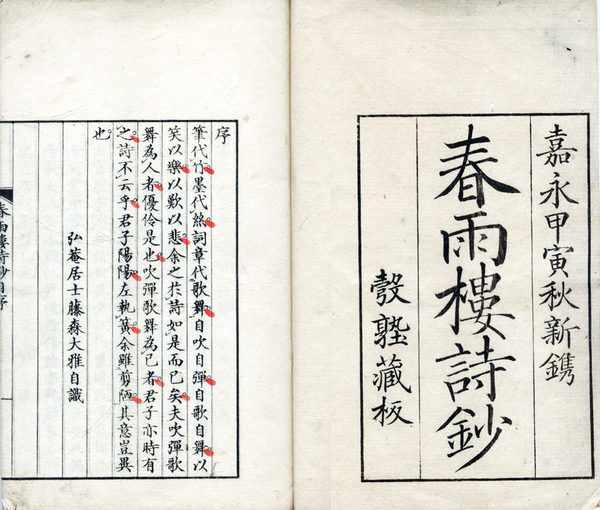 嘉永甲寅秋新鐫
春雨樓詩鈔
彀塾藏板
序
筆代竹墨代𢇁詞章代歌舞自吹自彈自歌自舞以
笑以樂以歎以悲余之於詩如是而已矣夫吹彈歌
舞為人者優伶是也吹彈歌舞為己者君子亦時有
之詩不云乎君子陽陽左執簧余雖剪陋其意豈異
也
弘菴居士藤森大雅自識
春雨樓詩鈔自序